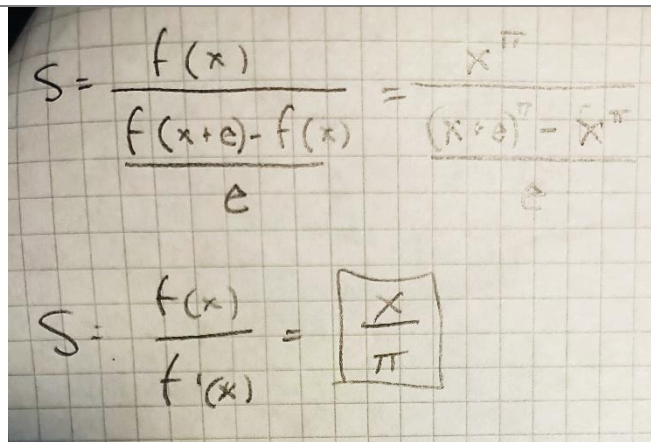 S = f(x) / ((f(x+e) - f(x)) / e) = x^π / (((x+e)^π - x^π) / e)
S = f(x) / f'(x) = x / π